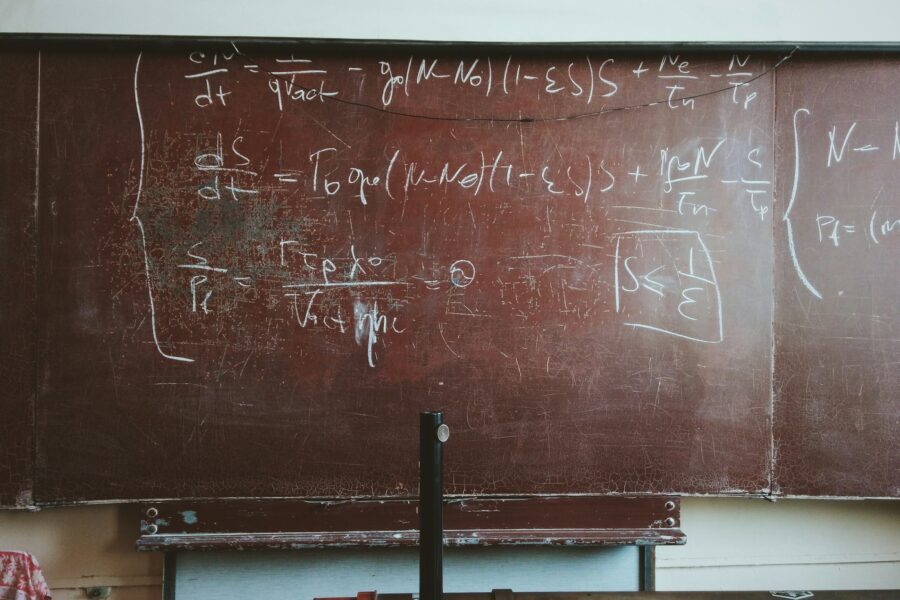 dN/dt = I/qVact - g₀(N-N₀)(1-εS)S + Ne/τn - N/τp
dS/dt = Γ₀g₀(N-N₀)(1-εS)S + N/τn - S/τp
S/Pf = Γτpλ₀/Vactηhc =
S ≤ 1/ε
N =
Pf = (